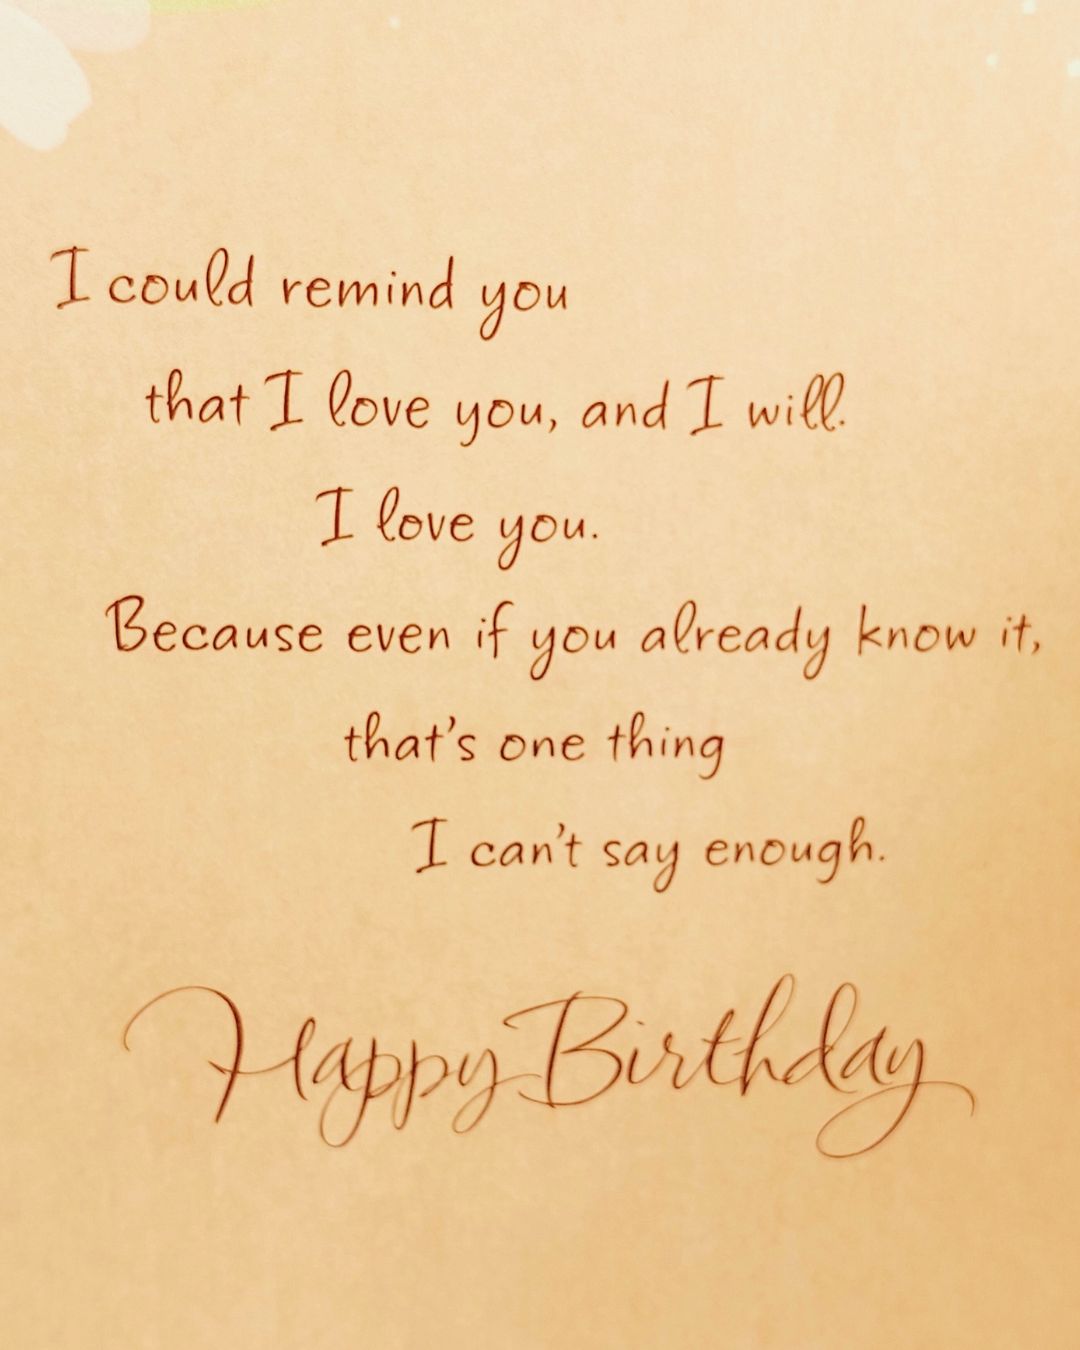 I could remind you
that I love you, and I will.
I love you.
Because even if you already know it,
that's one thing
I can't say enough.
Happy Birthday